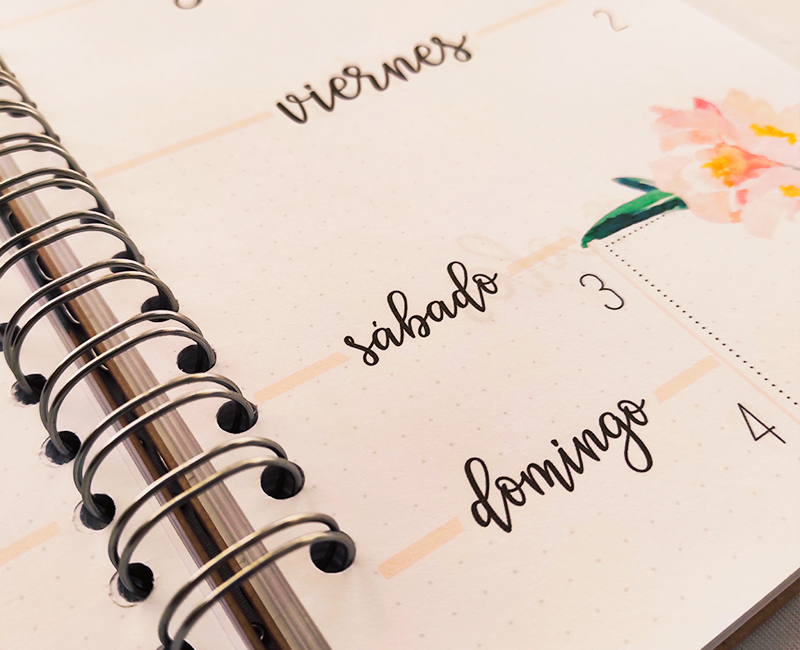 viernes
2
sábado
3
domingo
4